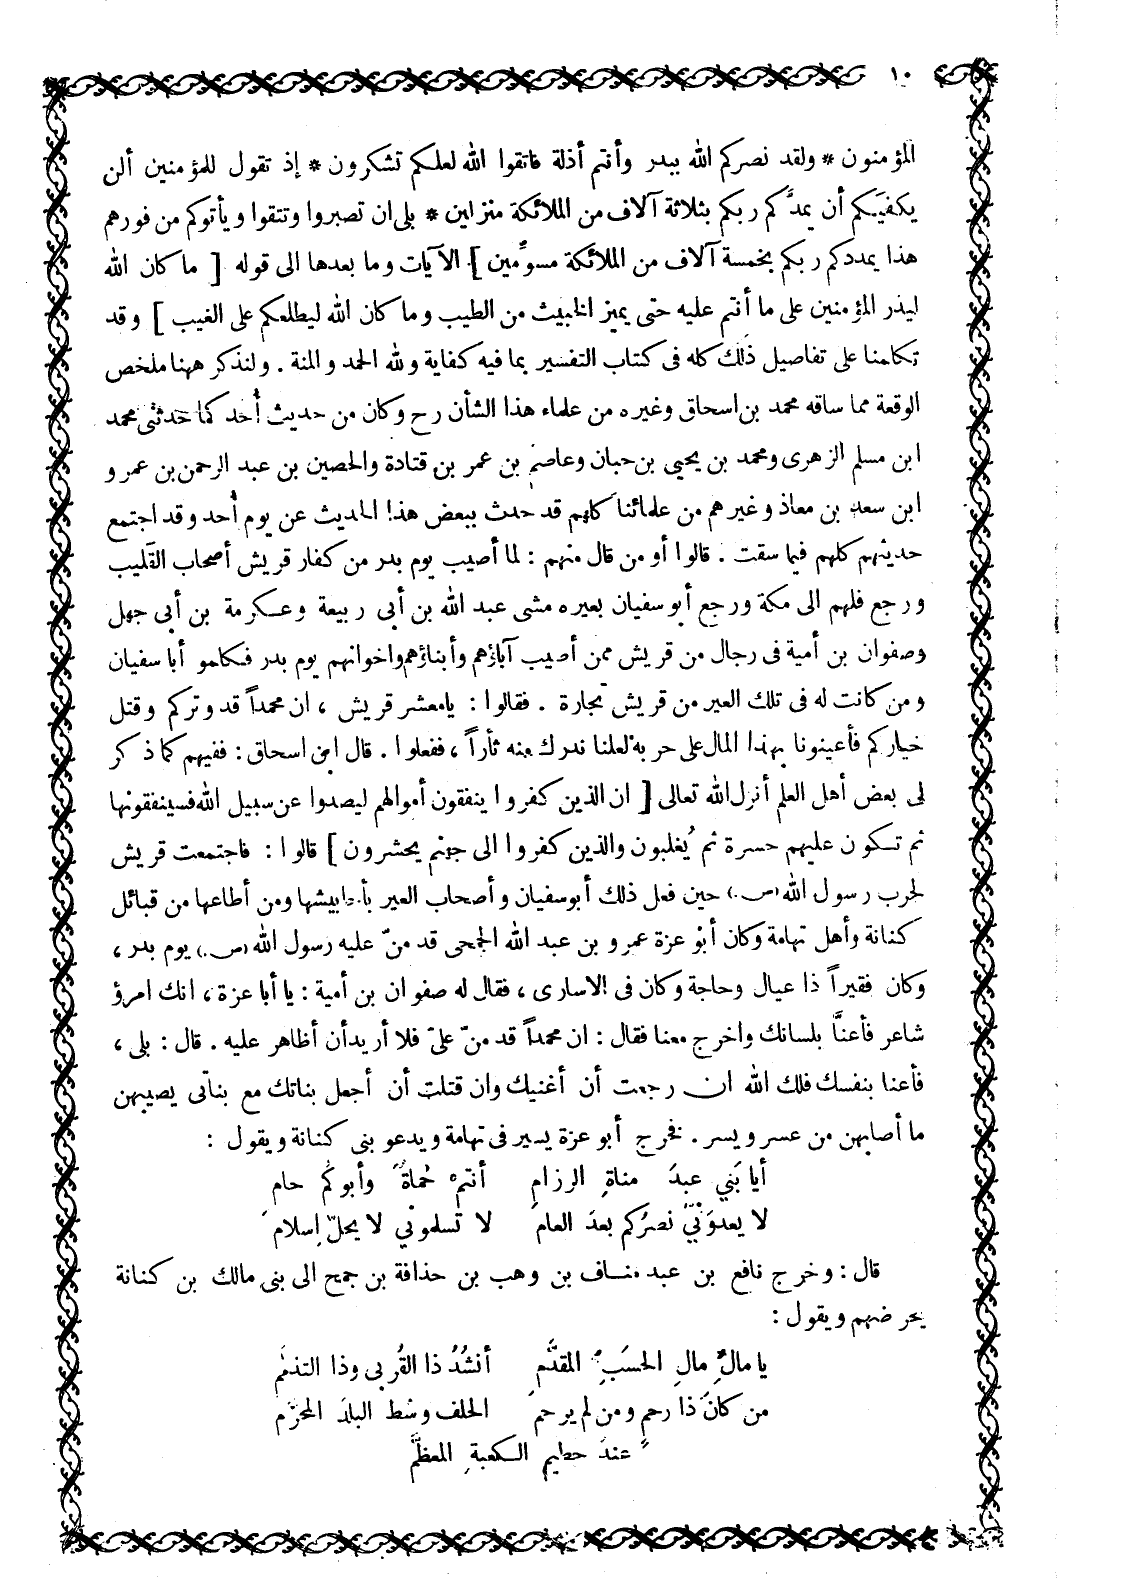 ١٠
المؤمنون * ولقد نصركم الله ببدر وأنتم أذلة فاتقوا الله لعلكم تشكرون * إذ تقول للمؤمنين ألن
يكفيَكم أن يمدَّكم ربكم بثلاثة آلاف من الملائكة منزلين * بلى ان تصبروا وتتقوا ويأتوكم من فورهم
هذا يمددكم ربكم بخمسة آلاف من الملائكة مسوِّمين ] الآيات وما بعدها الى قوله [ ما كان الله
ليذر المؤمنين على ما أنتم عليه حتى يميز الخبيث من الطيب وما كان الله ليطلعكم على الغيب ] وقد
تكلمنا على تفاصيل ذلك كله فى كتاب التفسير بما فيه كفاية ولله الحمد والمنة . ولنذكر ههنا ملخص
الوقعة مما ساقه محمد بن اسحاق وغيره من علماء هذا الشأن رح وكان من حديث أُحد كما حدثنى محمد
ابن مسلم الزهرى ومحمد بن يحيى بن حبان وعاصم بن عمر بن قتادة والحصين بن عبد الرحمن بن عمرو
ابن سعد بن معاذ وغيرهم من علمائنا كلهم قد حدث ببعض هذا الحديث عن يوم أُحد وقد اجتمع
حديثهم كلهم فيما سقت . قالوا أو من قال منهم : لما أصيب يوم بدر من كفار قريش أصحاب القَليب
ورجع فلهم الى مكة ورجع أبو سفيان بعيره مشى عبد الله بن أبى ربيعة وعكرمة بن أبى جهل
وصفوان بن أمية فى رجال من قريش ممن أصيب آباؤهم وأبناؤهم واخوانهم يوم بدر فكلموا أبا سفيان
ومن كانت له فى تلك العير من قريش تجارة . فقالوا : يا معشر قريش ، ان محمداً قد وتركم وقتل
خياركم فأعينونا بهذا المال على حربه لعلنا ندرك منه ثأراً ، ففعلوا . قال ابن اسحاق : ففيهم كما ذكر
لى بعض أهل العلم أنزل الله تعالى [ ان الذين كفروا ينفقون أموالهم ليصدوا عن سبيل الله فسينفقونها
ثم تكون عليهم حسرة ثم يُغلبون والذين كفروا الى جهنم يحشرون ] قالوا : فاجتمعت قريش
لحرب رسول الله (ص.) حين فعل ذلك أبو سفيان وأصحاب العير بأحابيشها ومن أطاعها من قبائل
كنانة وأهل تهامة وكان أبو عزة عمرو بن عبد الله الجمحى قد منّ عليه رسول الله (ص.) يوم بدر ،
وكان فقيراً ذا عيال وحاجة وكان فى الاسارى ، فقال له صفوان بن أمية : يا أبا عزة ، انك امرؤ
شاعر فأعنَّا بلسانك واخرج معنا فقال : ان محمداً قد منّ علىّ فلا أريد أن أظاهر عليه . قال : بلى ،
فأعنا بنفسك فلك الله ان رجعت أن أغنيك وان قتلت أن أجعل بناتك مع بناتى يصيبهن
ما أصابهن من عسر ويسر . فخرج أبو عزة يسير فى تهامة ويدعو بنى كنانة ويقول :
أيا بَني عبدَ مناةِ الرزامِ أنتمْ حُماةٌ وأبوكُم حام
لا يعدوَنِّي نصرُكم بعدَ العامِ لا تسلموني لا يحلّ إسلام
قال : وخرج نافع بن عبد مناف بن وهب بن حذافة بن جمح الى بنى مالك بن كنانة
يحرضهم ويقول :
يا مالُ مالِ الحسَبِ المقدَّمِ أنشُدُ ذا القُربى وذا التذمّم
من كانَ ذا رحمٍ ومن لم يرحمِ الحلف وسْط البلدَ المحرّم
عندَ حطيم الكعبةِ المعظَّم